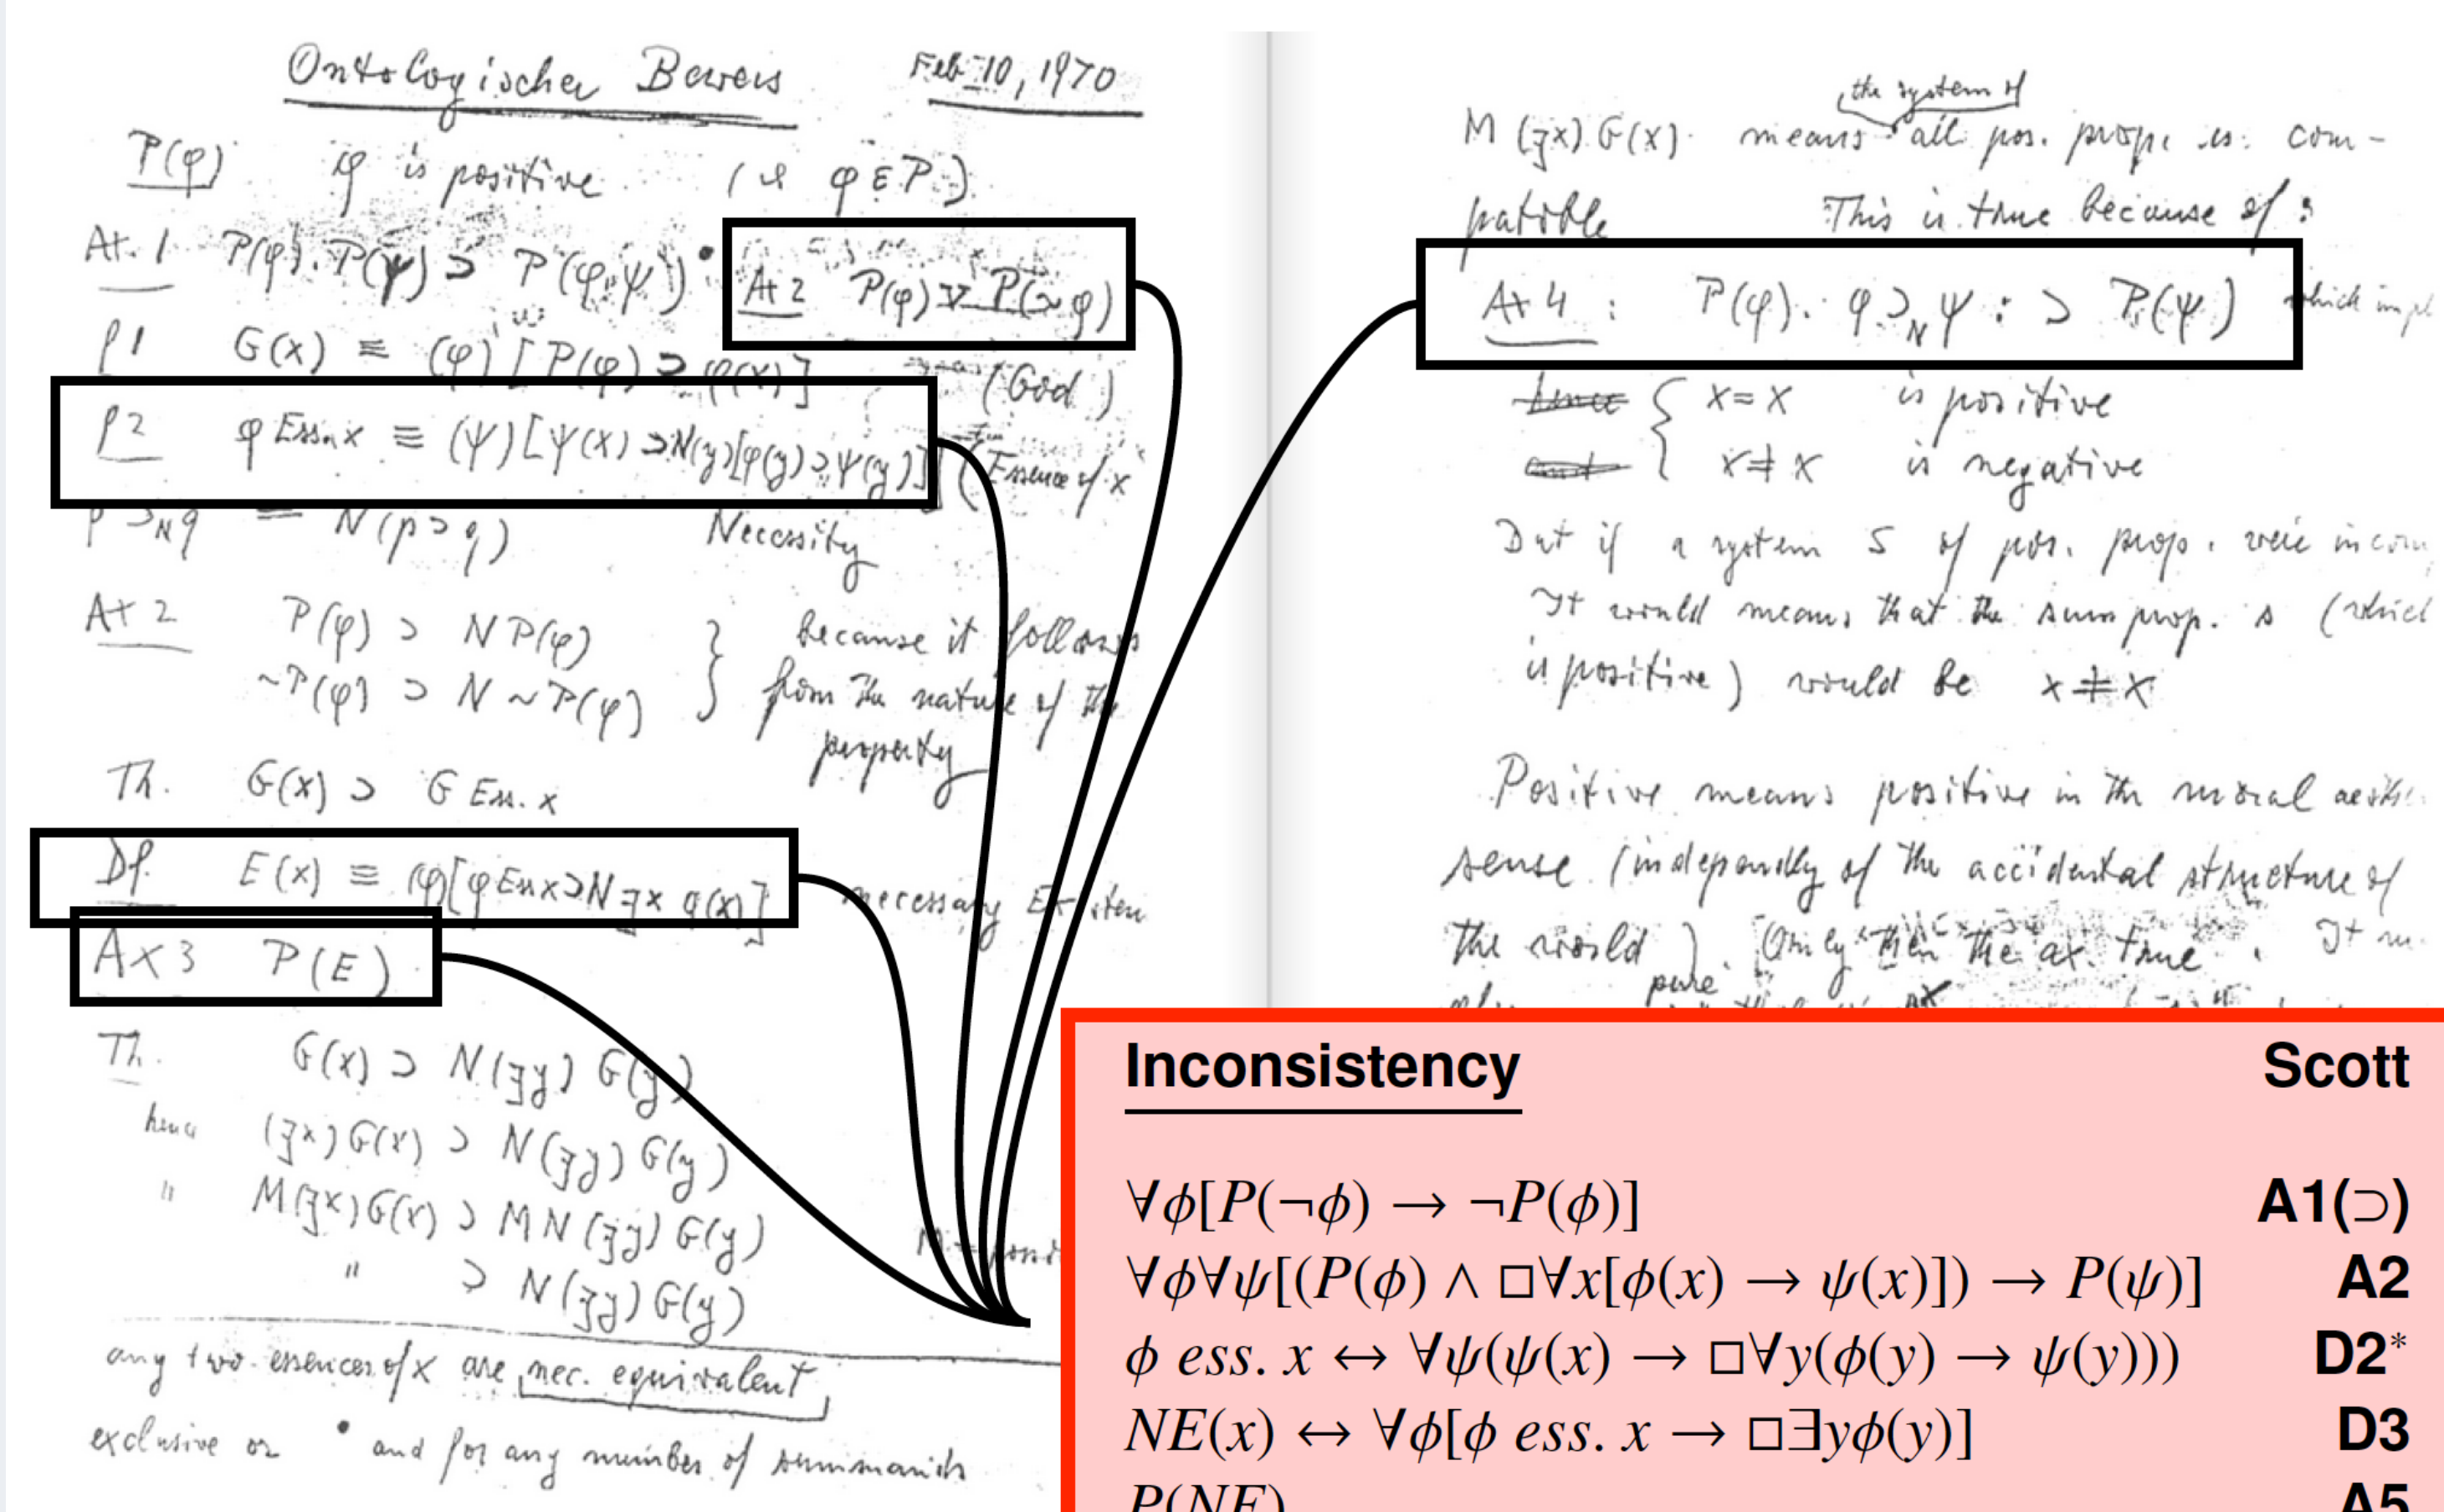 Ontologischer Beweis Feb 10, 1970
P(φ) φ is positive (ie φ ε P.)
At. 1 P(φ).P(ψ) ⊃ P(φ.ψ)• At 2 P(φ) v P(~φ)
P1 G(x) ≡ (φ)[P(φ) ⊃ φ(x)] (God)
P2 φ Ess. x ≡ (ψ)[ψ(x) ⊃ N(y)[φ(y) ⊃ ψ(y)]] (Essence of x
p ⊃N q = N(p ⊃ q) Necessity
At 2 P(φ) ⊃ N P(φ) } because it follows
~P(φ) ⊃ N ~P(φ) from the nature of the
property
Th. G(x) ⊃ G Ess. x
Df. E(x) ≡ (φ)[φ Ess x ⊃ N ∃x φ(x)] necessary Existen
Ax 3 P(E)
Th. G(x) ⊃ N(∃y) G(y)
hence (∃x) G(x) ⊃ N(∃y) G(y)
" M(∃x) G(x) ⊃ M N (∃y) G(y)
" ⊃ N(∃y) G(y)
any two essences of x are nec. equivalent
exclusive or • and for any number of summands
the system of
M (∃x) G(x) means all pos. prop. is com-
patible This is true because of:
At 4 : P(φ). φ ⊃N ψ : ⊃ P(ψ) which impl
hence { x=x is positive
and x≠x is negative
But if a system S of pos. prop. were incom
It would means that the sum prop. s (which
is positive) would be x≠x
Positive means positive in the moral aesthe
sense (independly of the accidental structure of
the world). Only then the ax. true. It m
pure
Inconsistency Scott
∀ϕ[P(¬ϕ) → ¬P(ϕ)] A1(⊃)
∀ϕ∀ψ[(P(ϕ) ∧ □∀x[ϕ(x) → ψ(x)]) → P(ψ)] A2
ϕ ess. x ↔ ∀ψ(ψ(x) → □∀y(ϕ(y) → ψ(y))) D2*
NE(x) ↔ ∀ϕ[ϕ ess. x → □∃yϕ(y)] D3
P(NE) A5